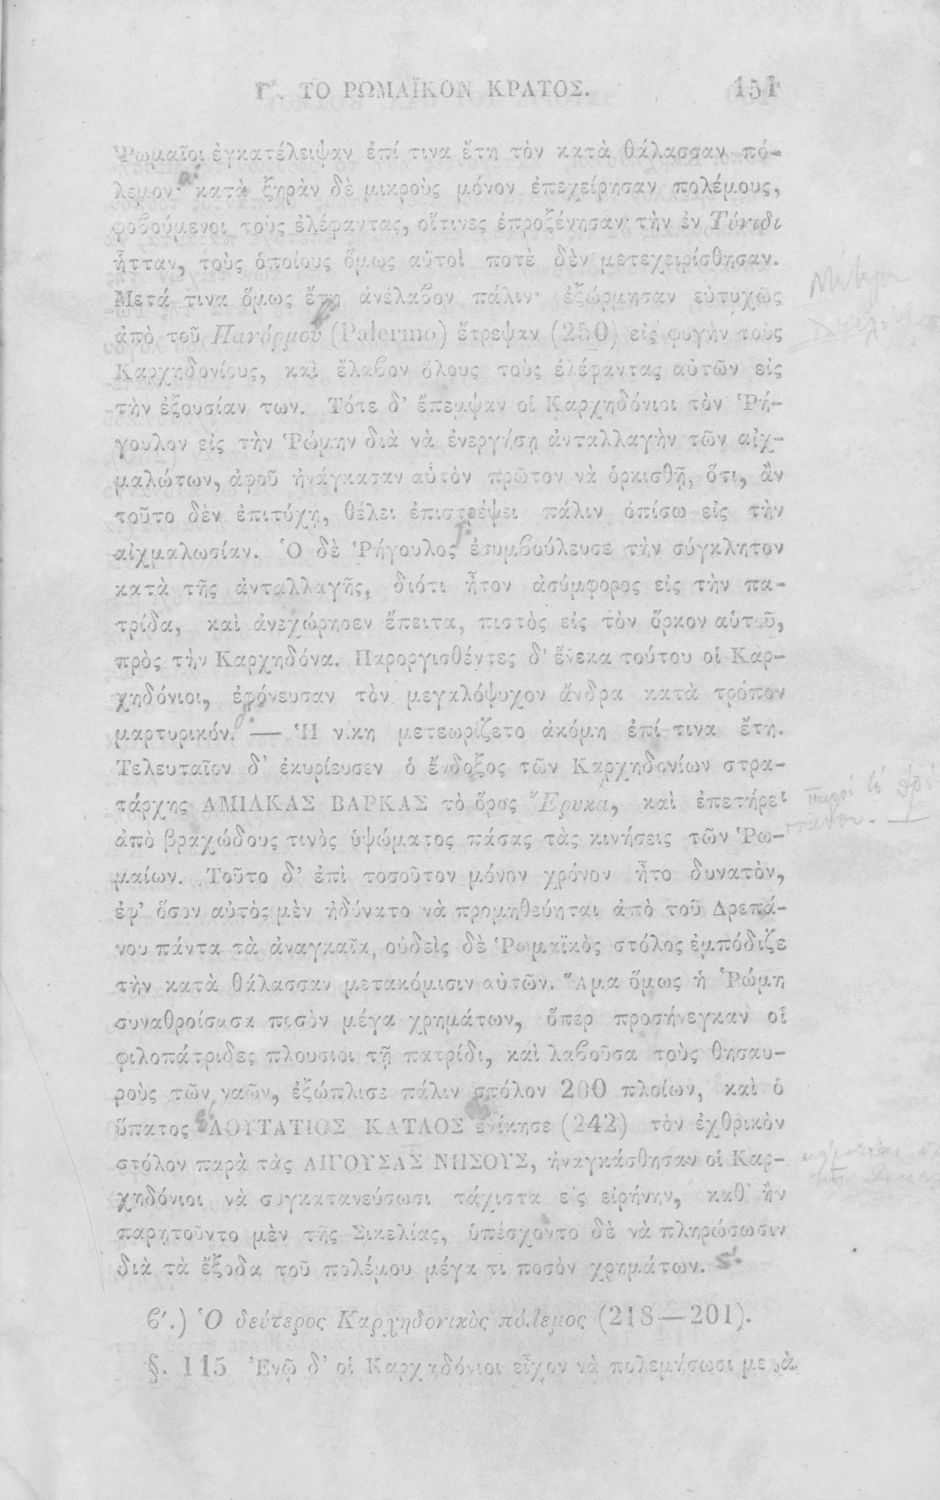 Γ΄. ΤΟ ΡΩΜΑΪΚΟΝ ΚΡΑΤΟΣ. 151
Ῥωμαῖοι ἐγκατέλειψαν ἐπί τινα ἔτη τὸν κατὰ θάλασσαν πό-
λεμον· κατὰ ξηρὰν δὲ μικροὺς μόνον ἐπεχείρησαν πολέμους,
φοβούμενοι τοὺς ἐλέφαντας, οἵτινες ἐπροξένησαν τὴν ἐν Τύνιδι
ἧτταν, τοὺς ὁποίους ὅμως αὐτοὶ ποτὲ δὲν μετεχειρίσθησαν.
Μετά τινα ὅμως ἔτη ἀνέλαβον πάλιν· ἐξώρμησαν εὐτυχῶς
ἀπὸ τοῦ Πανόρμου (Palermo) ἔτρεψαν (250) εἰς φυγὴν τοὺς
Καρχηδονίους, καὶ ἔλαβον ὅλους τοὺς ἐλέφαντας αὐτῶν εἰς
τὴν ἐξουσίαν των. Τότε δ' ἔπεμψαν οἱ Καρχηδόνιοι τὸν Ῥή-
γουλον εἰς τὴν Ῥώμην διὰ νὰ ἐνεργήσῃ ἀνταλλαγὴν τῶν αἰχ-
μαλώτων, ἀφοῦ ἠνάγκασαν αὐτὸν πρῶτον νὰ ὁρκισθῇ, ὅτι, ἂν
τοῦτο δὲν ἐπιτύχῃ, θέλει ἐπιστρέψει πάλιν ὀπίσω εἰς τὴν
αἰχμαλωσίαν. Ὁ δὲ Ῥήγουλος ἐσυμβούλευσε τὴν σύγκλητον
κατὰ τῆς ἀνταλλαγῆς, διότι ἦτον ἀσύμφορος εἰς τὴν πα-
τρίδα, καὶ ἀνεχώρησεν ἔπειτα, πιστὸς εἰς τὸν ὅρκον αὑτοῦ,
πρὸς τὴν Καρχηδόνα. Παροργισθέντες δ' ἕνεκα τούτου οἱ Καρ-
χηδόνιοι, ἐφόνευσαν τὸν μεγαλόψυχον ἄνδρα κατὰ τρόπον
μαρτυρικόν. — Ἡ νίκη μετεωρίζετο ἀκόμη ἐπί τινα ἔτη.
Τελευταῖον δ' ἐκυρίευσεν ὁ ἔνδοξος τῶν Καρχηδονίων στρα-
τάρχης ΑΜΙΛΚΑΣ ΒΑΡΚΑΣ τὸ ὄρος Ἔρυκα, καὶ ἐπετήρει
ἀπὸ βραχώδους τινὸς ὑψώματος πάσας τὰς κινήσεις τῶν Ῥω-
μαίων. Τοῦτο δ' ἐπὶ τοσοῦτον μόνον χρόνον ἦτο δυνατὸν,
ἐφ' ὅσον αὐτὸς μὲν ἠδύνατο νὰ προμηθεύηται ἀπὸ τοῦ Δρεπά-
νου πάντα τὰ ἀναγκαῖα, οὐδεὶς δὲ Ῥωμαϊκὸς στόλος ἐμπόδιζε
τὴν κατὰ θάλασσαν μετακόμισιν αὐτῶν. Ἅμα ὅμως ἡ Ῥώμη
συναθροίσασα ποσὸν μέγα χρημάτων, ὅπερ προσήνεγκαν οἱ
φιλοπάτριδες πλούσιοι τῇ πατρίδι, καὶ λαβοῦσα τοὺς θησαυ-
ροὺς τῶν ναῶν, ἐξώπλισε πάλιν στόλον 200 πλοίων, καὶ ὁ
ὕπατος ΛΟΥΤΑΤΙΟΣ ΚΑΤΛΟΣ ἐνίκησε (242) τὸν ἐχθρικὸν
στόλον παρὰ τὰς ΑΙΓΟΥΣΑΣ ΝΗΣΟΥΣ, ἠναγκάσθησαν οἱ Καρ-
χηδόνιοι νὰ συγκατανεύσωσι τάχιστα εἰς εἰρήνην, καθ' ἣν
παρῃτοῦντο μὲν τῆς Σικελίας, ὑπέσχοντο δὲ νὰ πληρώσωσιν
διὰ τὰ ἔξοδα τοῦ πολέμου μέγα τι ποσὸν χρημάτων.
β΄.) Ὁ δεύτερος Καρχηδονικὸς πόλεμος (218—201).
§. 115 Ἐνῷ δ' οἱ Καρχηδόνιοι εἶχον νὰ πολεμήσωσι μετὰ